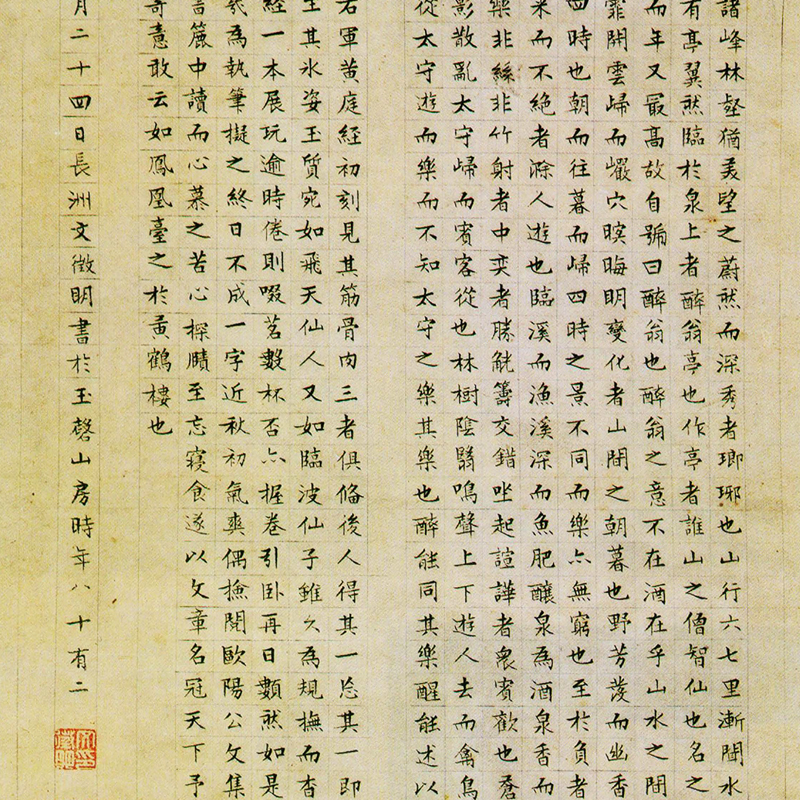 諸峰林壑猶美望之蔚然而深秀者瑯琊也山行六七里漸聞水
有亭翼然臨於泉上者醉翁亭也作亭者誰山之僧智仙也名之
而年又最高故自號曰醉翁也醉翁之意不在酒在乎山水之間
霏開雲歸而巖穴暝晦明變化者山間之朝暮也野芳發而幽香
四時也朝而往暮而歸四時之景不同而樂亦無窮也至於負者
來而不絕者滁人遊也臨溪而漁溪深而魚肥釀泉為酒泉香而
樂非絲非竹射者中奕者勝觥籌交錯坐起諠譁者衆賓歡也蒼
影散亂太守歸而賓客從也林樹陰翳鳴聲上下遊人去而禽鳥
從太守遊而樂而不知太守之樂其樂也醉能同其樂醒能述以
右軍黃庭經初刻見其筋骨肉三者俱備後人得其一忘其一即
生其氷姿玉質宛如飛天仙人又如臨波仙子雖久為規撫而杳
經一本展玩逾時倦則啜茗數杯否亦握卷引臥再日數然如是
為執筆擬之終日不成一字近秋初氣爽偶撿閱歐陽公文集
簏中讀而心慕之苦心探賾至忘寢食遂以文章名冠天下予
奇意敢云如鳳凰臺之於黃鶴樓也
月二十四日長洲文徵明書於玉磬山房時年八十有二